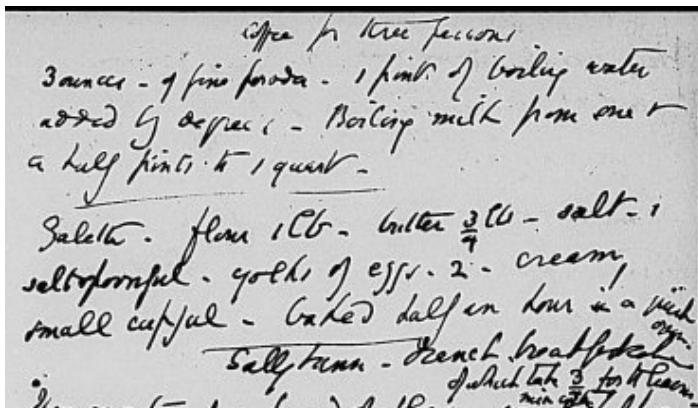 Coffee for three persons
3 ounces - of fine powder - 1 pint of boiling water
added by degrees - Boiling milk from one &
a half pints to 1 quart -
Galette - flour 1 lb - butter 3/4 lb - salt - 1
saltspoonful - yolks of eggs - 2 - cream,
small cupful - baked half an hour in a quick
oven
Sally Lunn - French breakfast cake
of which take 3/4 for